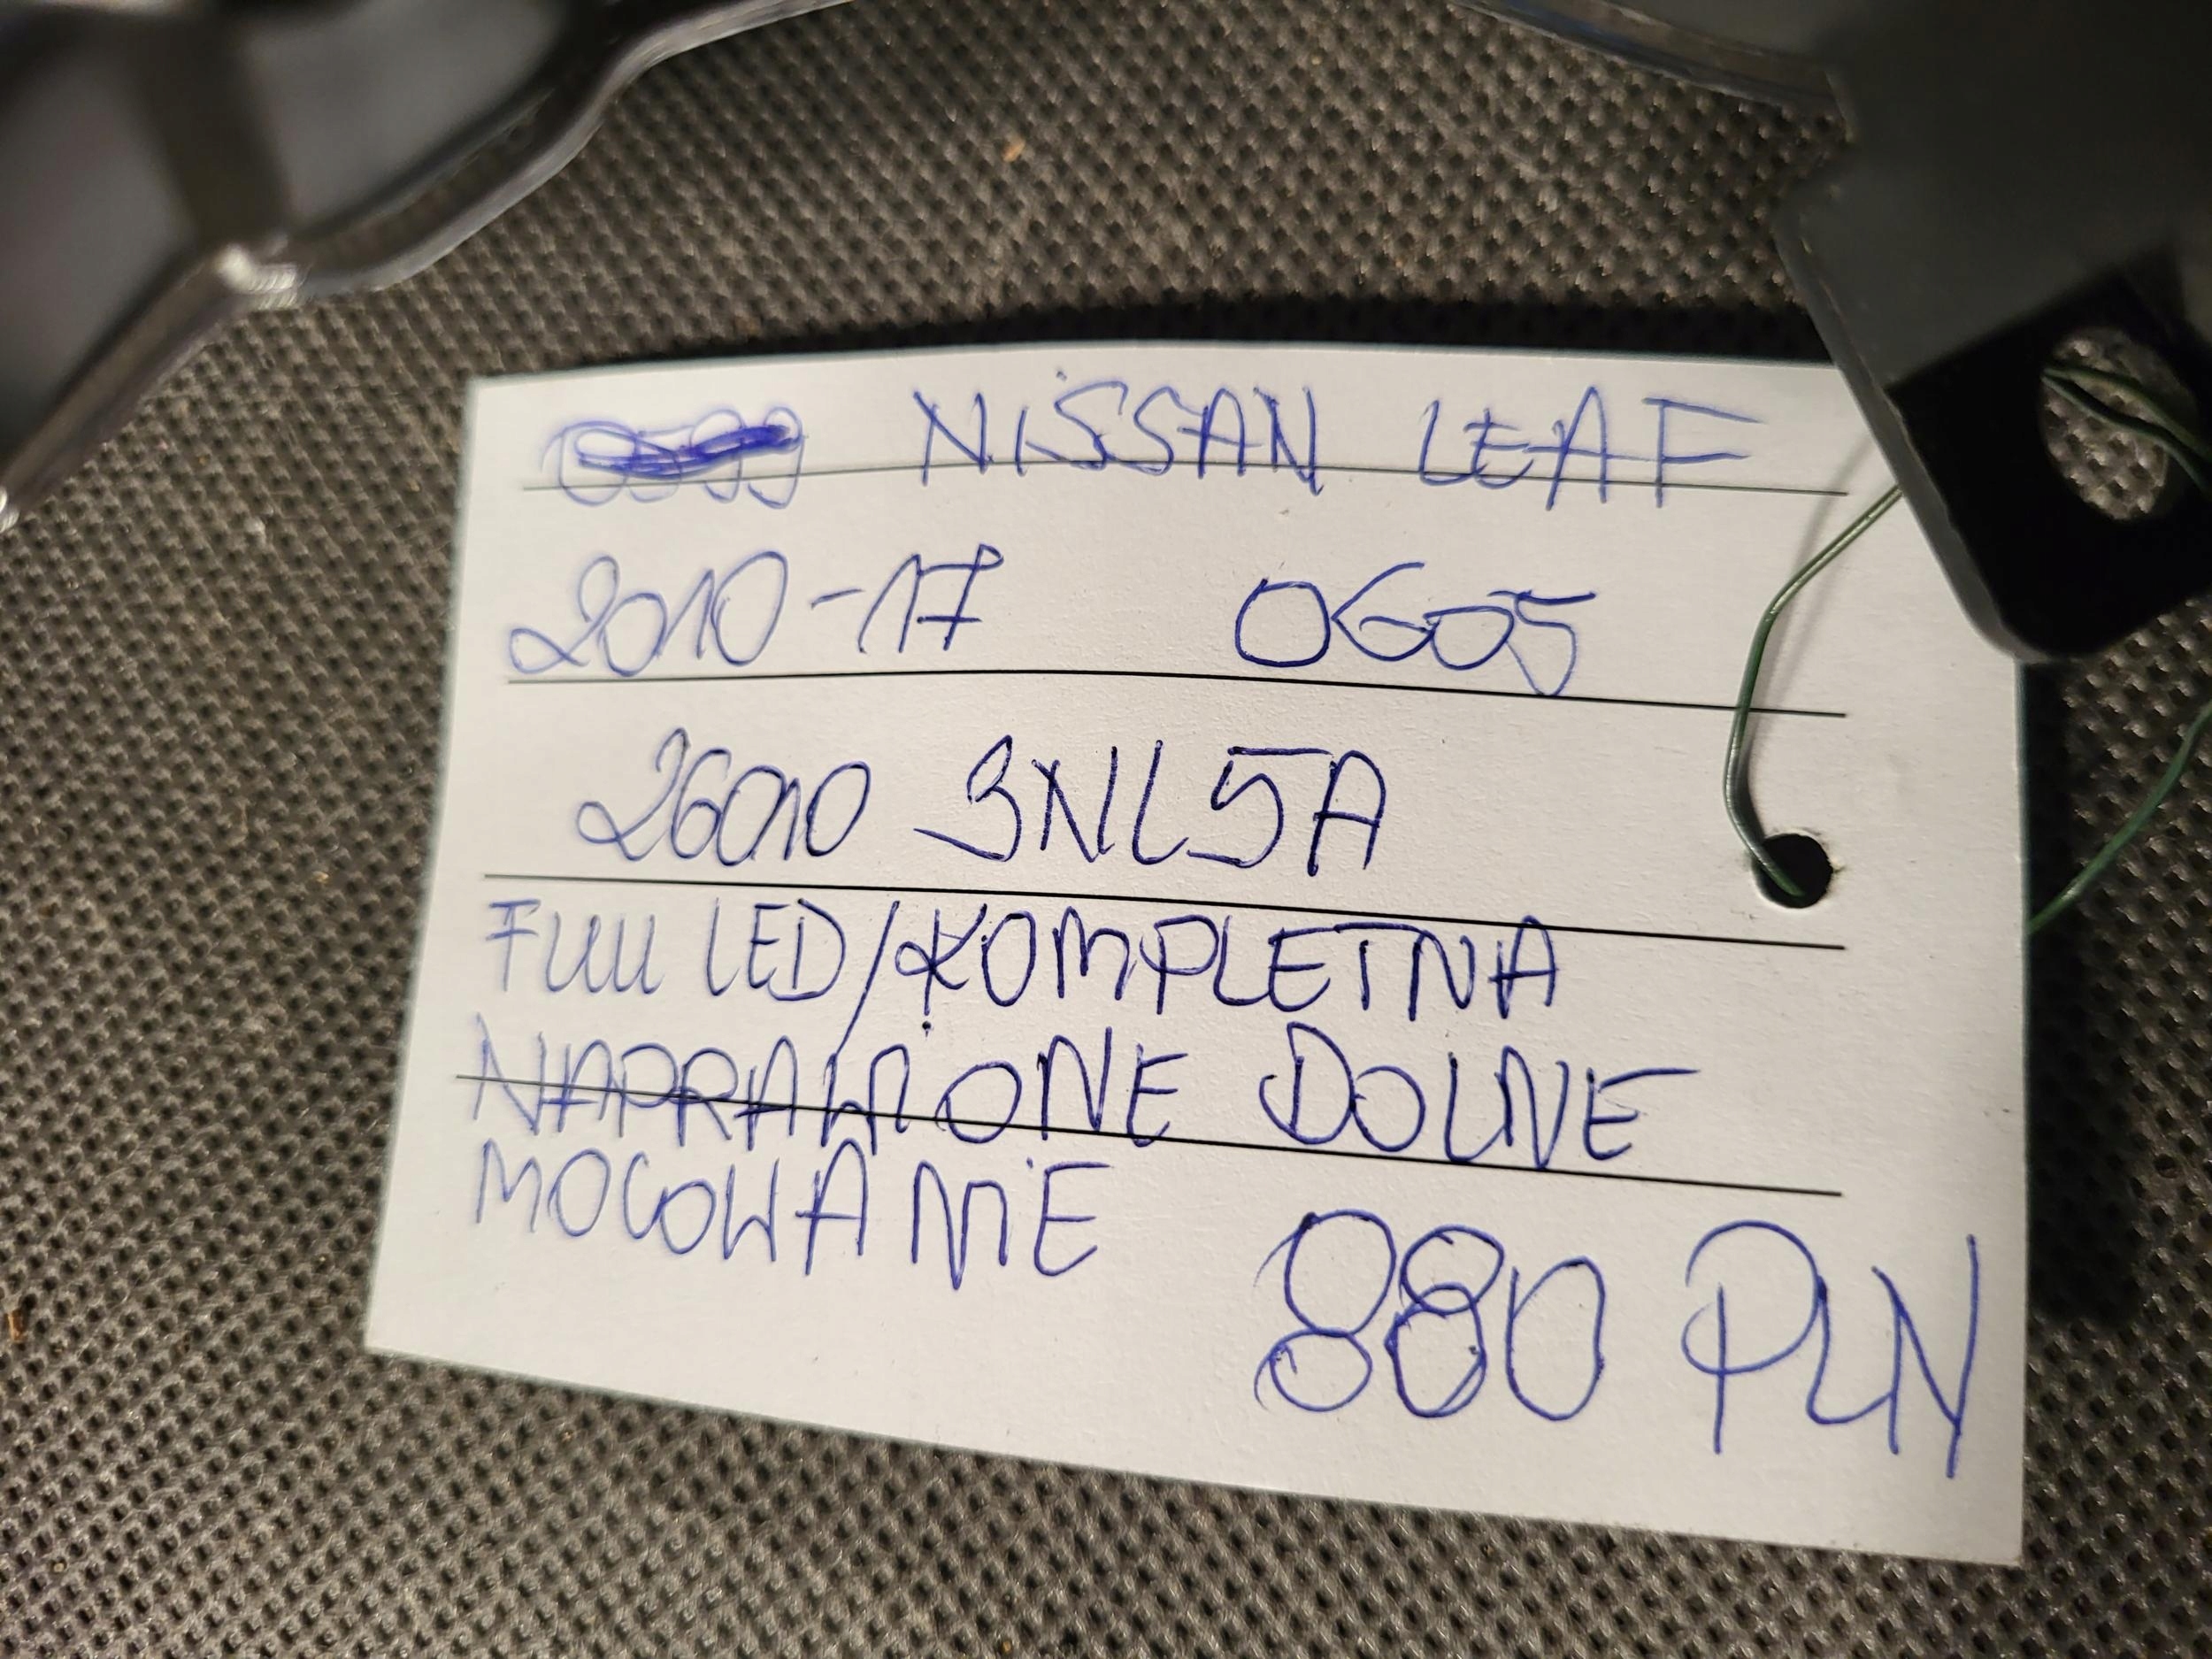 NISSAN LEAF
2010-17 0605
26010 3NL5A
FULL LED/KOMPLETNA
NAPRAWIONE DOLNE
MOCOWANIE
880 PLN